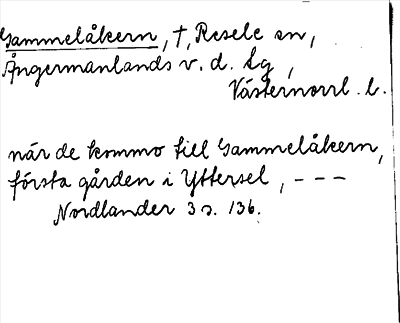 Gammelåkern, †, Resele sn,
Ångermanlands v. d. Lg,
Västernorrl. l.
när de kommo till Gammelåkern,
första gården i Yttersel, - - -
Nordlander 3 s. 136.